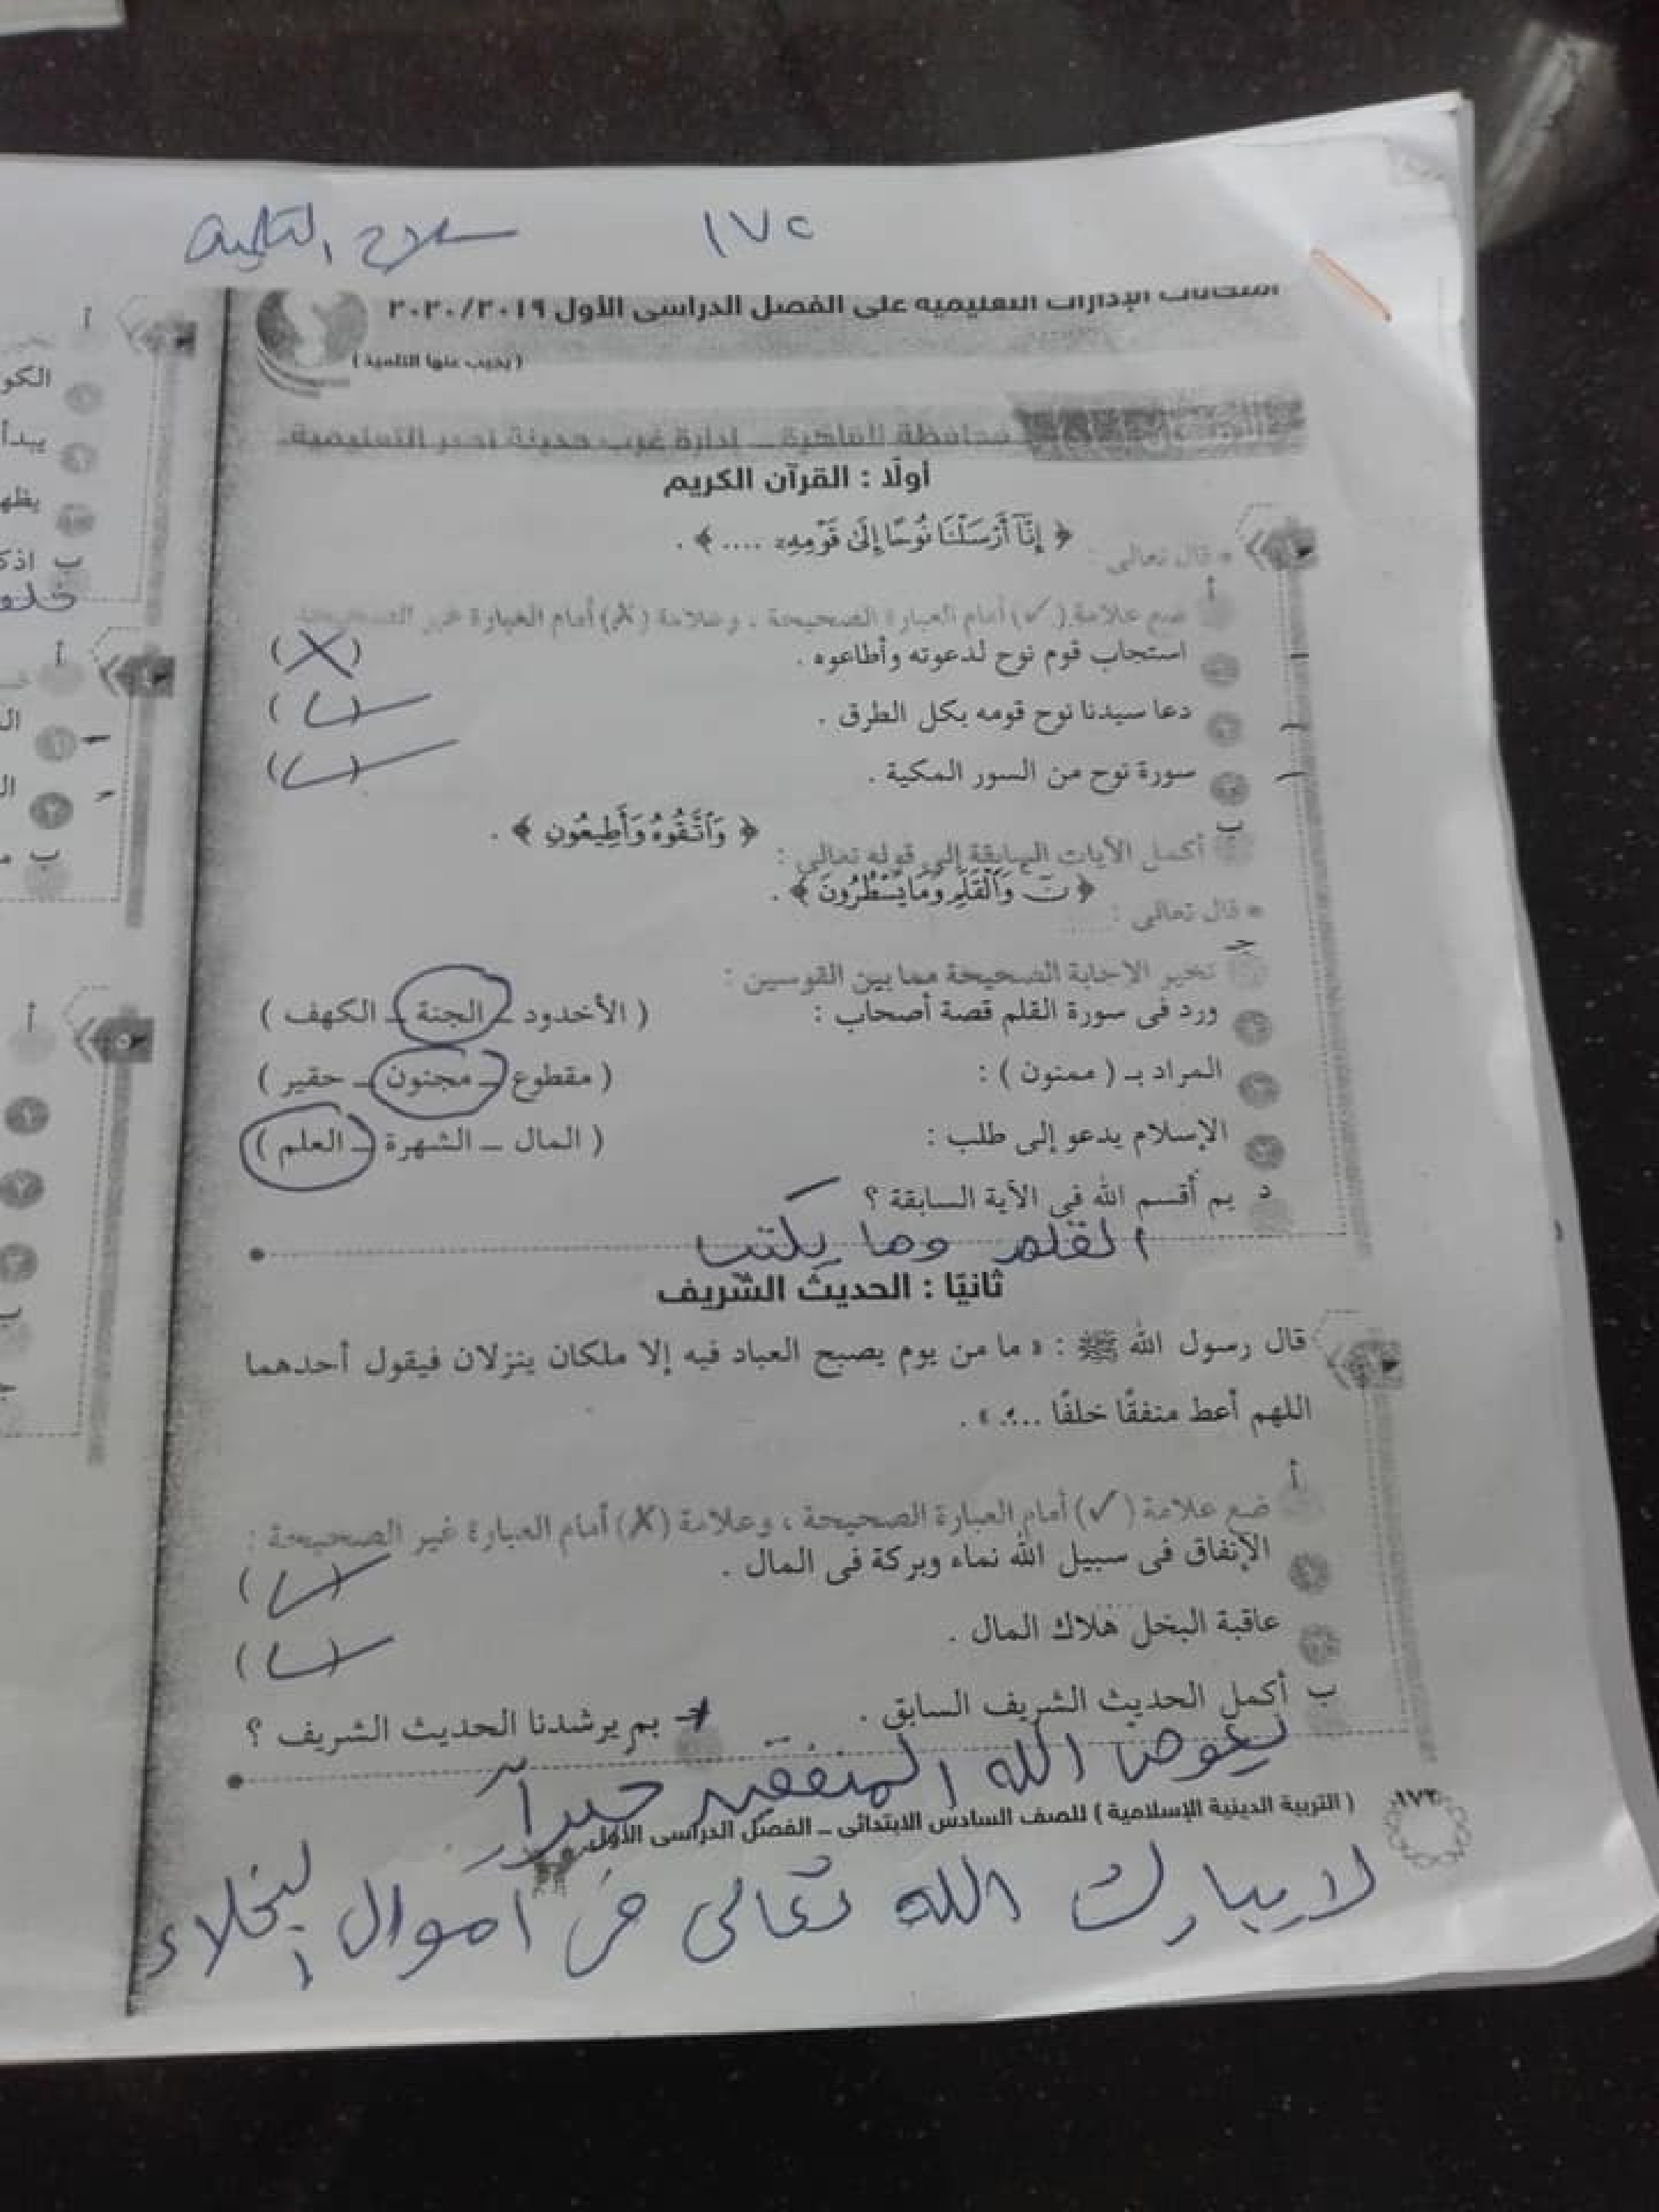 سلاح التلميذ ١٧٢
امتحانات الإدارات التعليمية على الفصل الدراسى الأول ٢٠٢٠/٢٠١٩
( يجيب عنها التلميذ )
محافظة القاهرة ــ إدارة غرب مدينة نصر التعليمية
أولًا : القرآن الكريم
١ * قال تعالى : ﴿ إِنَّآ أَرْسَلْنَا نُوحًا إِلَىٰ قَوْمِهِۦ .... ﴾ .
أ ضع علامة (✓) أمام العبارة الصحيحة ، وعلامة (✗) أمام العبارة غير الصحيحة
استجاب قوم نوح لدعوته وأطاعوه . (✗)
دعا سيدنا نوح قومه بكل الطرق . (✓)
سورة نوح من السور المكية . (✓)
ب أكمل الآيات السابقة إلى قوله تعالى : ﴿ وَاتَّقُوهُ وَأَطِيعُونِ ﴾ .
* قال تعالى : ﴿ نٓ وَالْقَلَمِ وَمَا يَسْطُرُونَ ﴾ .
جـ تخير الإجابة الصحيحة مما بين القوسين :
ورد فى سورة القلم قصة أصحاب : ( الأخدود ــ الجنة ــ الكهف )
المراد بـ ( ممنون ) : ( مقطوع ــ مجنون ــ حقير )
الإسلام يدعو إلى طلب : ( المال ــ الشهرة ــ العلم )
د بم أقسم الله فى الآية السابقة ؟
القلم وما يكتب
ثانيًا : الحديث الشريف
٢ قال رسول الله ﷺ : « ما من يوم يصبح العباد فيه إلا ملكان ينزلان فيقول أحدهما
اللهم أعط منفقًا خلفًا .... » .
أ ضع علامة (✓) أمام العبارة الصحيحة ، وعلامة (✗) أمام العبارة غير الصحيحة :
الإنفاق فى سبيل الله نماء وبركة فى المال . (✓)
عاقبة البخل هلاك المال . (✓)
ب أكمل الحديث الشريف السابق . جـ بم يرشدنا الحديث الشريف ؟
يعوض الله المنفقين خيراً
١٧٣ ( التربية الدينية الإسلامية ) للصف السادس الابتدائى ــ الفصل الدراسى الأول
لا يبارك الله تعالى فى أموال البخلاء
أ
الكو
يبدأ
يظه
ب اذك
خلو
أ
٤
ب
أ
٥